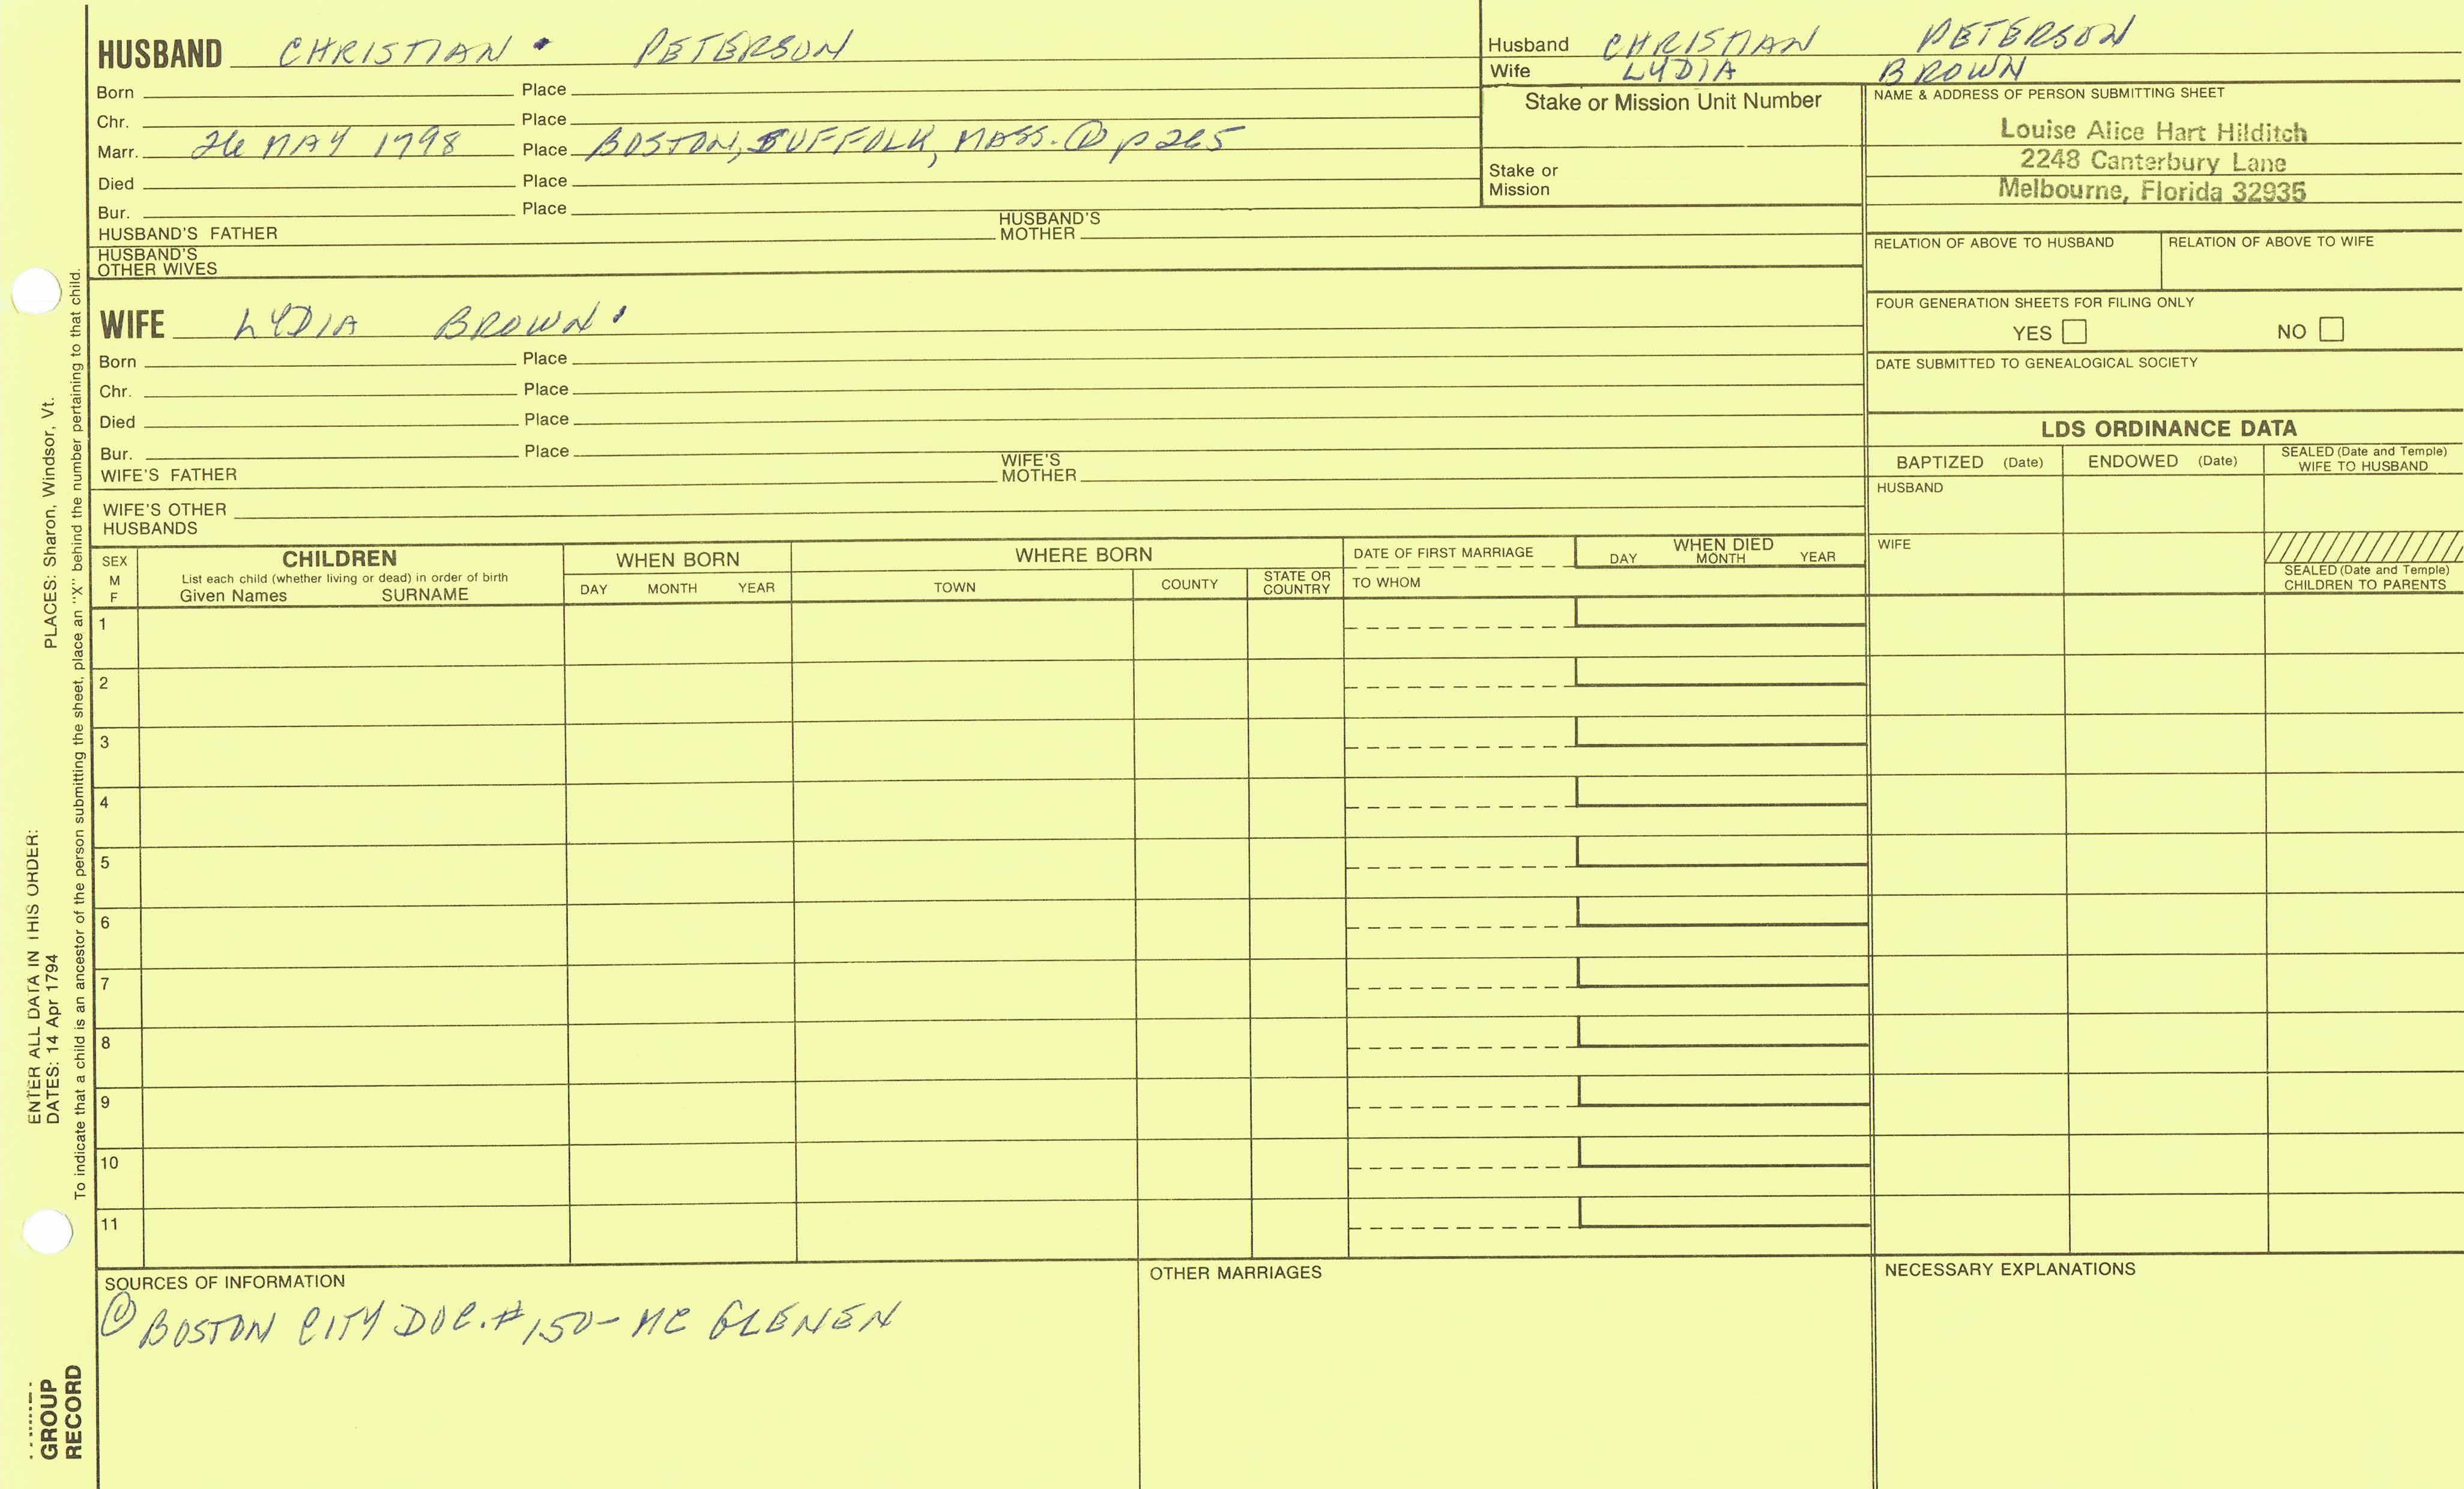 HUSBAND CHRISTIAN PETERSON
Born Place
Chr. Place
Marr. 26 MAY 1798 Place BOSTON, SUFFOLK, MASS. ① p 265
Died Place
Bur. Place
HUSBAND'S FATHER HUSBAND'S MOTHER
HUSBAND'S OTHER WIVES
Husband CHRISTIAN PETERSON
Wife LYDIA BROWN
Stake or Mission Unit Number
Stake or Mission
NAME & ADDRESS OF PERSON SUBMITTING SHEET
Louise Alice Hart Hilditch
2248 Canterbury Lane
Melbourne, Florida 32935
RELATION OF ABOVE TO HUSBAND RELATION OF ABOVE TO WIFE
FOUR GENERATION SHEETS FOR FILING ONLY
YES NO
DATE SUBMITTED TO GENEALOGICAL SOCIETY
WIFE LYDIA BROWN
Born Place
Chr. Place
Died Place
Bur. Place
WIFE'S FATHER WIFE'S MOTHER
WIFE'S OTHER HUSBANDS
LDS ORDINANCE DATA
BAPTIZED (Date) ENDOWED (Date) SEALED (Date and Temple) WIFE TO HUSBAND
HUSBAND
WIFE
SEALED (Date and Temple) CHILDREN TO PARENTS
SEX M F
CHILDREN
List each child (whether living or dead) in order of birth
Given Names SURNAME
WHEN BORN
DAY MONTH YEAR
WHERE BORN
TOWN COUNTY STATE OR COUNTRY
DATE OF FIRST MARRIAGE
TO WHOM
WHEN DIED
DAY MONTH YEAR
1
2
3
4
5
6
7
8
9
10
11
SOURCES OF INFORMATION
① BOSTON CITY DOC. # 150 - MC GLENEN
OTHER MARRIAGES
NECESSARY EXPLANATIONS
ENTER ALL DATA IN THIS ORDER:
DATES: 14 Apr 1794 PLACES: Sharon, Windsor, Vt.
To indicate that a child is an ancestor of the person submitting the sheet, place an "X" behind the number pertaining to that child.
GROUP
RECORD